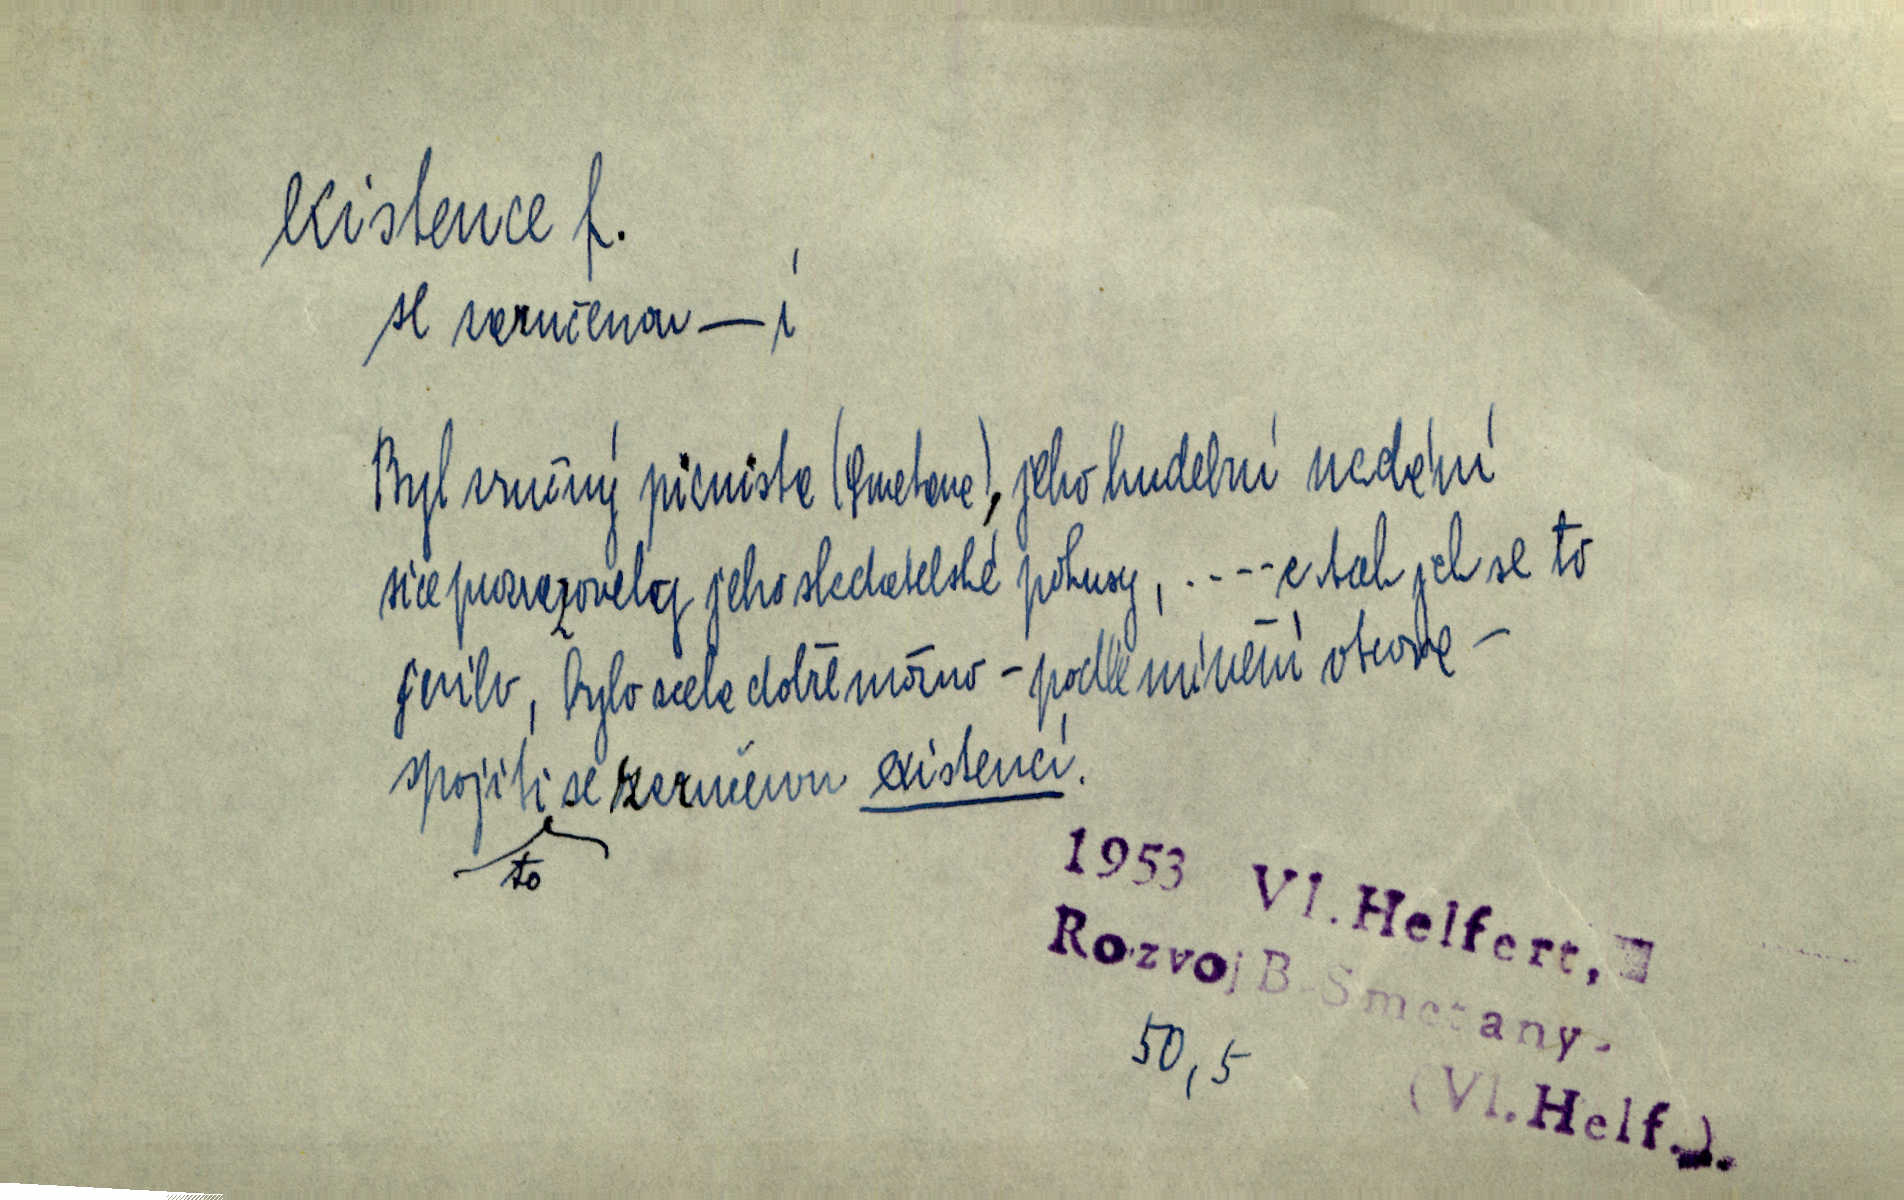 existence f.
se zaručenou — í
Byl zručný pianista (Smetana), jeho hudební nadání
sice prozrazovaly jeho skladatelské pokusy, .---- a tak jak se to
jevilo, bylo zcela dobře možno - podle mínění otcova -
spojiti se zaručenou existencí.
to
1953 Vl. Helfert,
Rozvoj B. Smetany.
50,5
(Vl. Helf.).